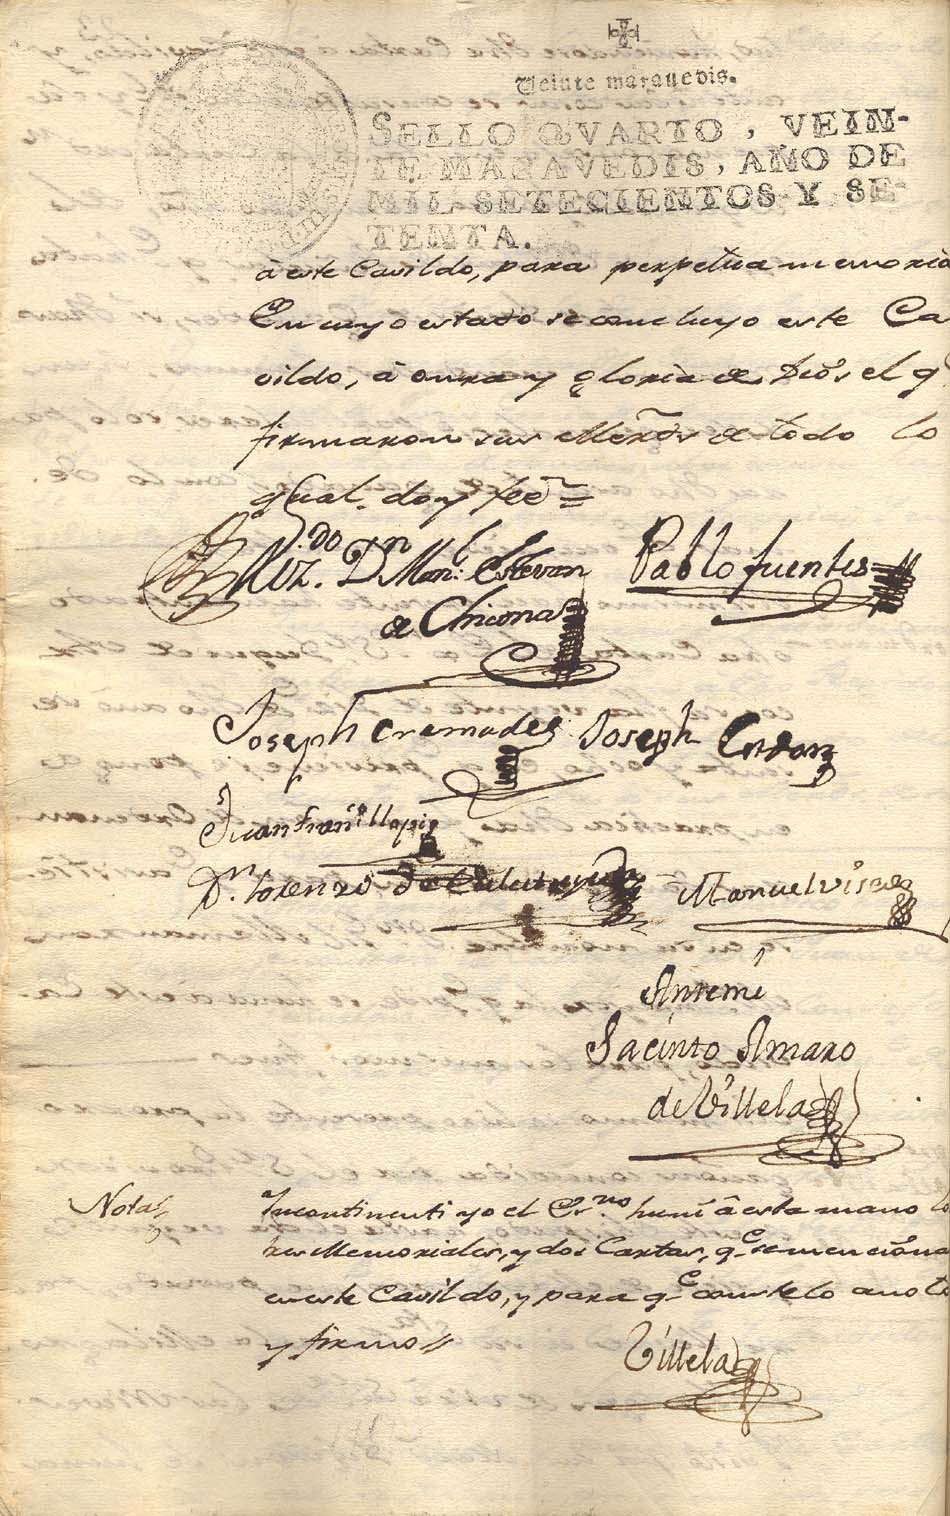 Veinte maravedis.
SELLO QVARTO, VEIN-
TE MARAVEDIS, AÑO DE
MIL SETECIENTOS Y SE-
TENTA.
à este Cavildo, para perpetua memoria
En cuyo estado se concluyo este Ca
vildo, à onrra y gloria de Dios el q
firmaron sus Merds. de todo lo
qual. doy feè =
Lizdo. Dn Manl. Estevan
de Chicona
Pablo fuentes
Joseph Cremades
Joseph
Juan Frano. llopis
Dn. Lorenzo de
Manuel
Antemi
Jacinto Amaro
de Villela
Nota
Incontinenti yo el Esno. huni à esta mano lo
tres Memoriales, y dos Cartas, qe. se menciona
en este Cavildo, y para qe. conste lo anoto
y firmo //
Villela